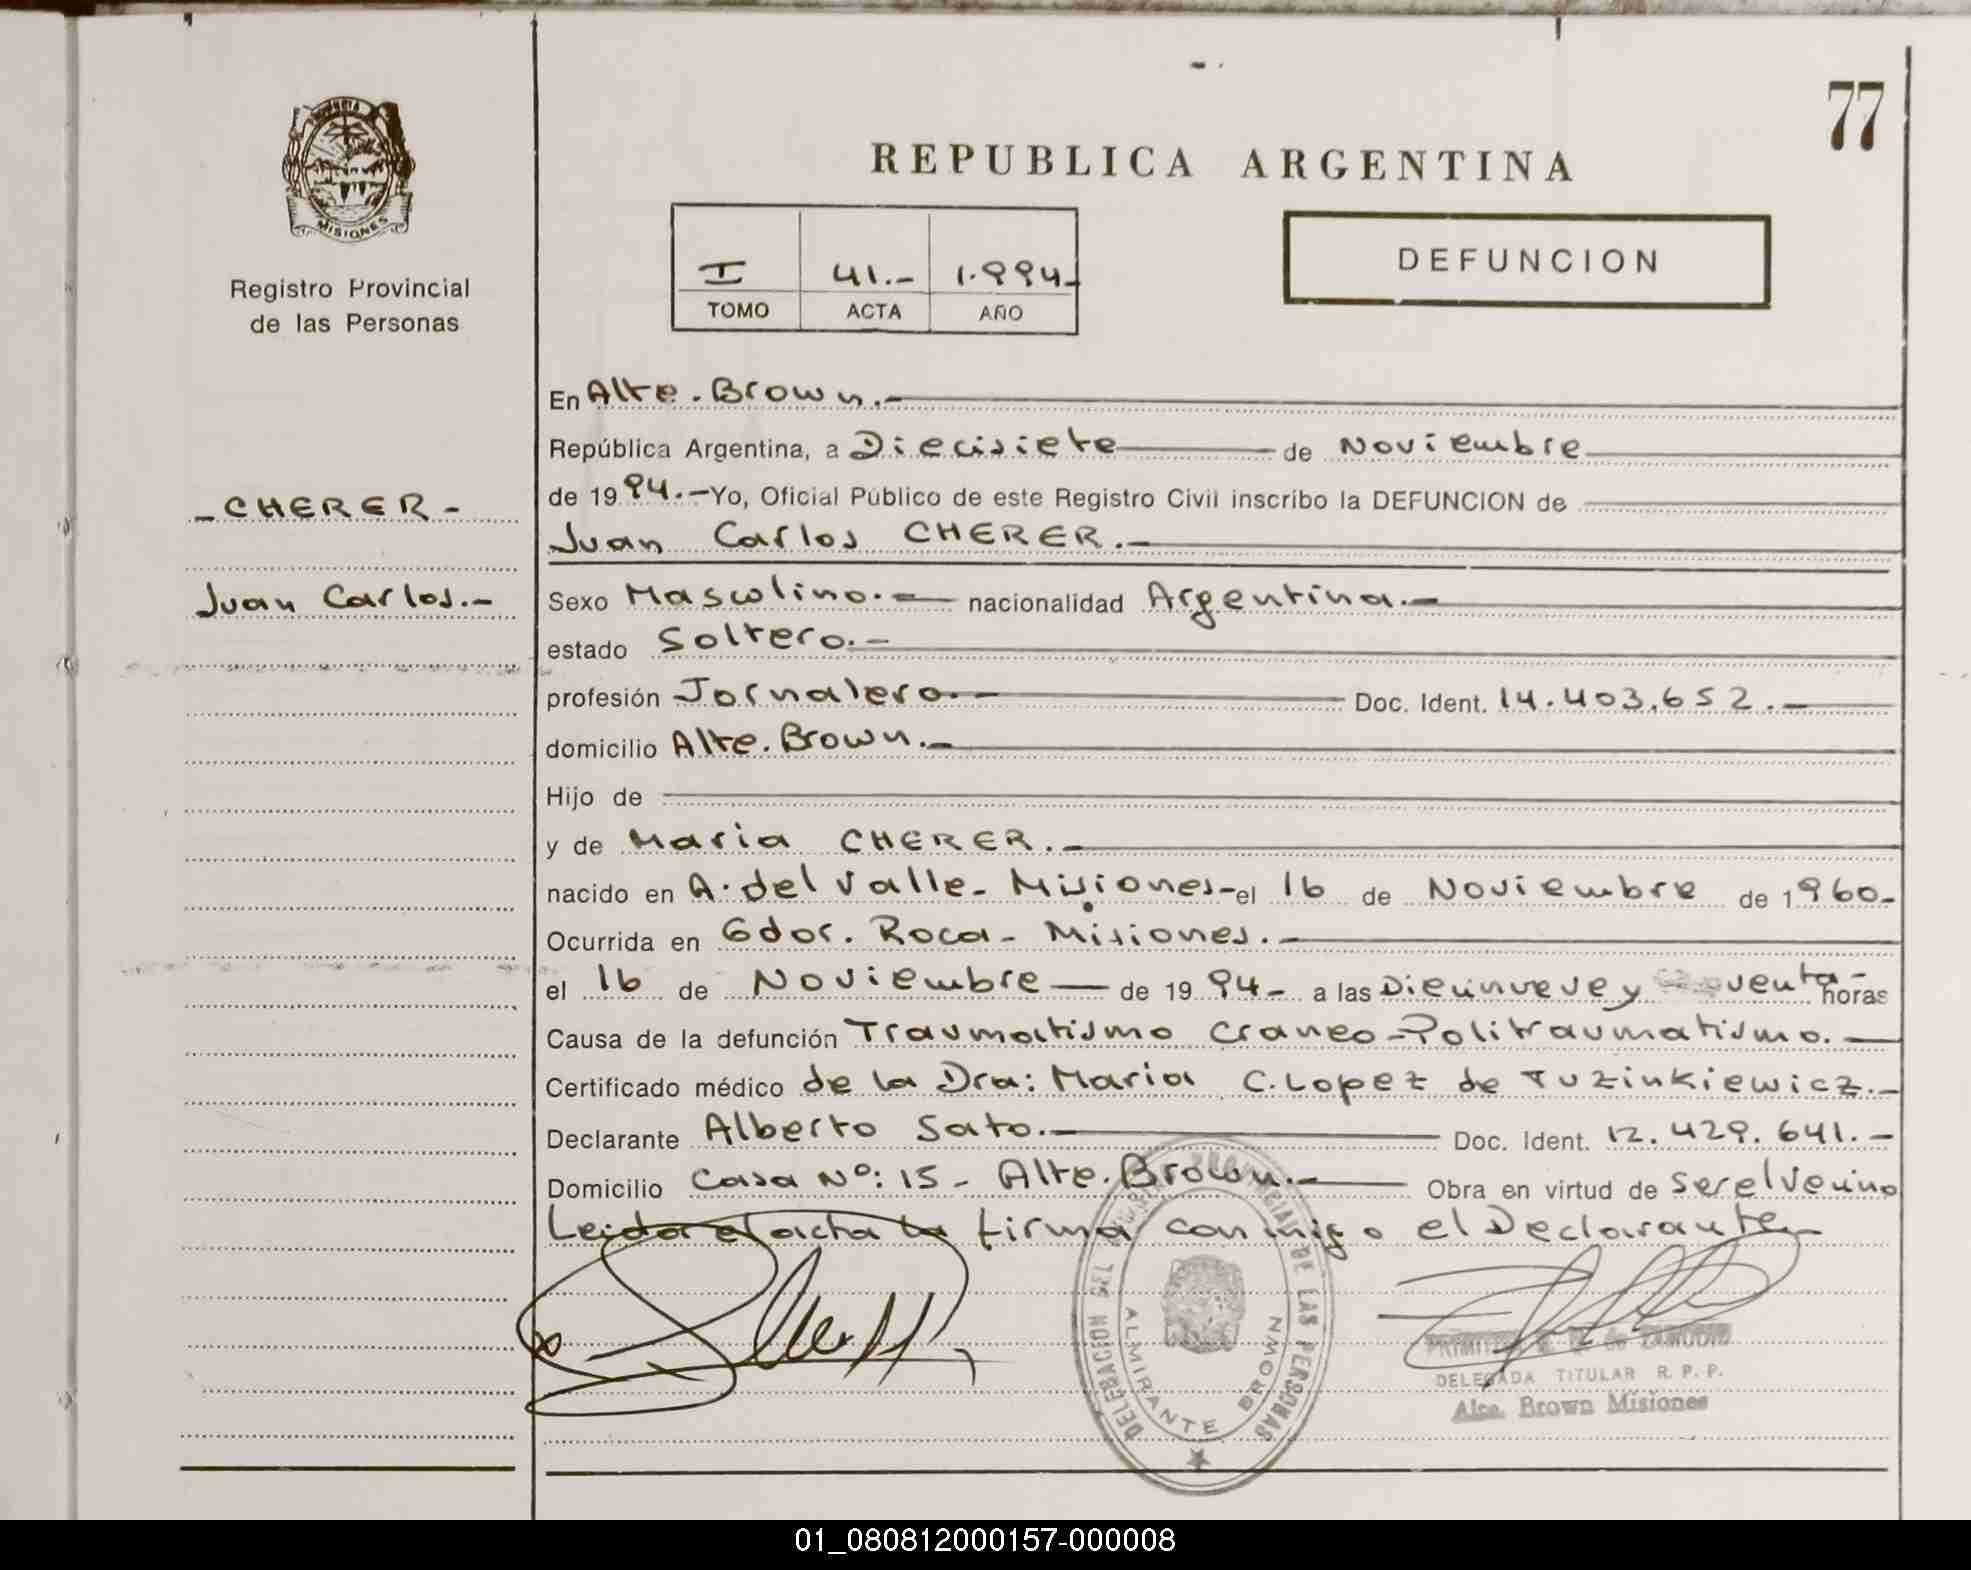 77
PROVINCIA
MISIONES
Registro Provincial
de las Personas
REPUBLICA ARGENTINA
I 41.- 1.994-
TOMO ACTA AÑO
DEFUNCION
- CHERER -
Juan Carlos.-
En Alte. Brown.-
República Argentina, a Diecisiete de Noviembre
de 1994.- Yo, Oficial Público de este Registro Civil inscribo la DEFUNCION de
Juan Carlos CHERER.-
Sexo Masculino.- nacionalidad Argentina.-
estado Soltero.-
profesión Jornalero.- Doc. Ident. 14.403.652.-
domicilio Alte. Brown.-
Hijo de
y de Maria CHERER.-
nacido en A. del Valle- Misiones- el 16 de Noviembre de 1960-
Ocurrida en Gdor. Roca- Misiones.-
el 16 de Noviembre de 1994- a las Diecinueve y horas
Causa de la defunción Traumatismo craneo-Politraumatismo.-
Certificado médico de la Dra: Maria C. Lopez de Tuzinkiewicz.-
Declarante Alberto Sato.- Doc. Ident. 12.429.641.-
Domicilio Casa Nº: 15 - Alte. Brown.- Obra en virtud de ser el vecino
Leida el acta la firma conmigo el Declarante-
DELEGACION DEL REGISTRO PROVINCIAL DE LAS PERSONAS
ALMIRANTE BROWN
de ZAMUDIO
DELEGADA TITULAR R. P. P.
Alte. Brown Misiones
01_080812000157-000008